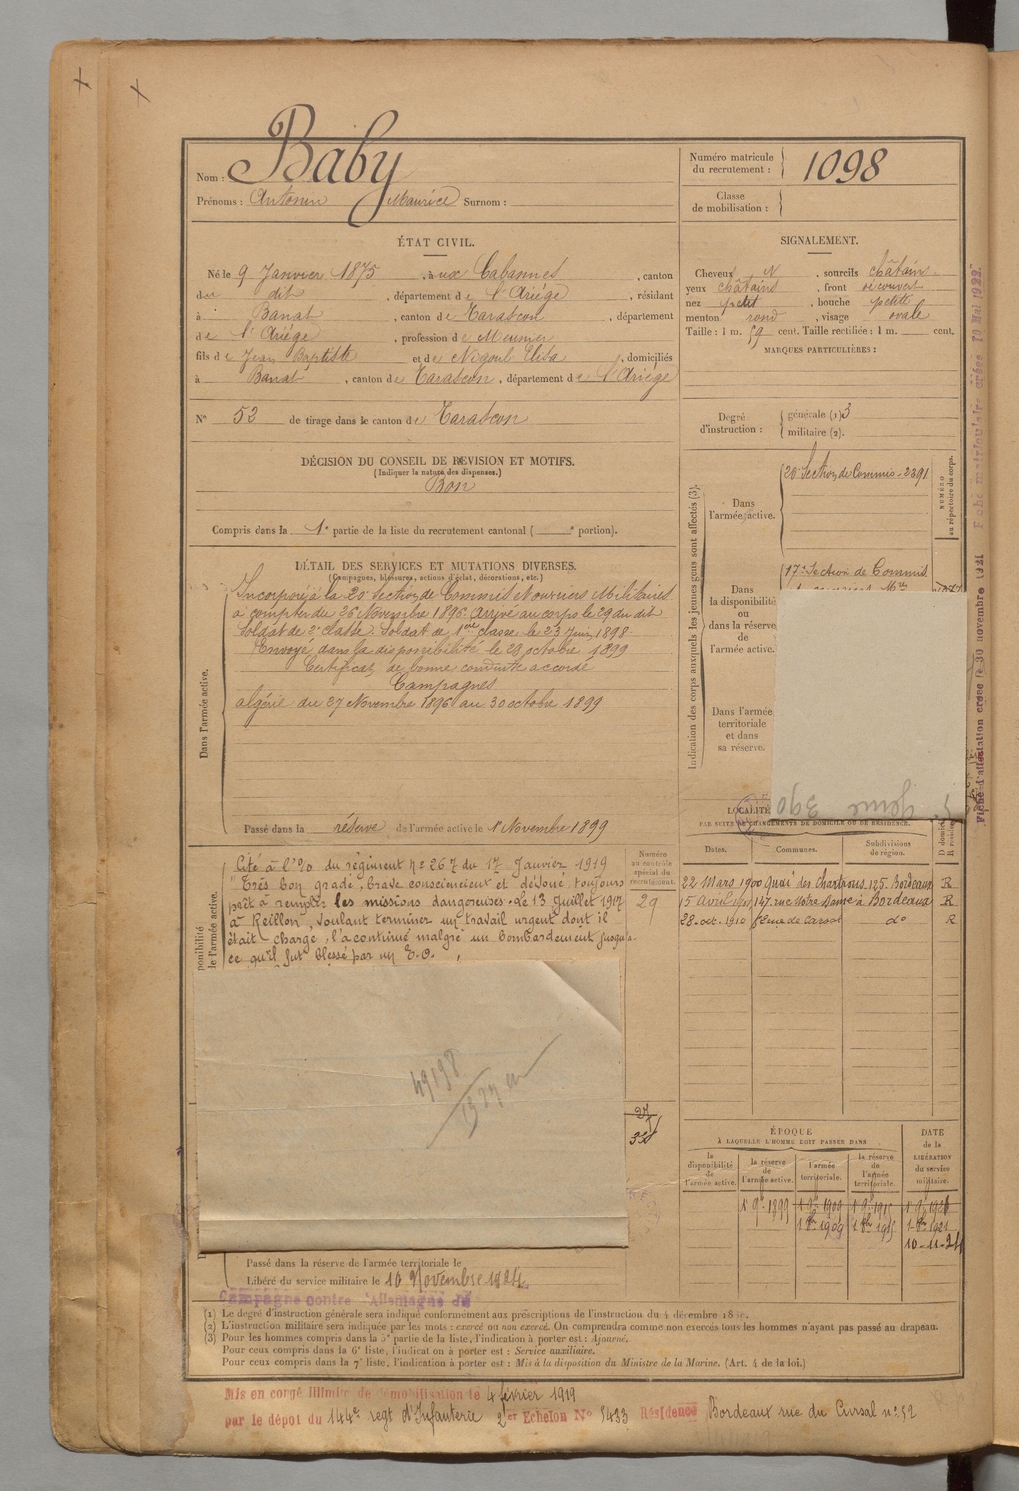 Nom : Baby
Prénoms : Antonin Maurice Surnom :
Numéro matricule du recrutement : 1098
Classe de mobilisation :
ÉTAT CIVIL.
Né le 9 Janvier 1875, à ux Cabannes, canton
du dit, département de l'Ariége, résidant
à Banat, canton de Tarascon, département
de l'Ariége, profession de Meunier
fils de Jean Baptiste et de Nigoul Elisa, domiciliés
à Banat, canton de Tarascon, département de l'Ariége
N° 53 de tirage dans le canton de Tarascon
DÉCISION DU CONSEIL DE REVISION ET MOTIFS.
(Indiquer la nature des dispenses.)
Bon
Compris dans la 1e partie de la liste du recrutement cantonal ( e portion).
SIGNALEMENT.
Cheveux N, sourcils châtains
yeux châtains, front découvert
nez petit, bouche petite
menton rond, visage ovale
Taille : 1 m. 59 cent. Taille rectifiée : 1 m. cent.
MARQUES PARTICULIÈRES :
Degré d'instruction : générale (1) 3
militaire (2).
Indication des corps auxquels les jeunes gens sont affectés (3).
NUMÉRO au répertoire du corps.
Dans l'armée active.
20e Section de Commis - 2391
Dans la disponibilité ou dans la réserve de l'armée active.
17e Section de Commis
Dans l'armée territoriale et dans sa réserve.
DÉTAIL DES SERVICES ET MUTATIONS DIVERSES.
(Campagnes, blessures, actions d'éclat, décorations, etc.)
Dans l'armée active.
Incorporé à la 20e Section de Commis et Ouvriers Militaires
à compter du 26 Novembre 1896. Arrivé au corps le 29 du dit
Soldat de 2e classe. Soldat de 1ère classe le 23 Juin 1898.
Envoyé dans la disponibilité le 29 octobre 1899
Certificat de bonne conduite accordé
Campagnes
algérie du 27 Novembre 1896 au 30 octobre 1899
Passé dans la réserve de l'armée active le 1er Novembre 1899
390
LOCALITÉ
PAR SUITE DE CHANGEMENTS DE DOMICILE OU DE RÉSIDENCE.
Dates. Communes. Subdivisions de région. D domicile R résidence
22 Mars 1900 Quai des Chartrons 125 Bordeaux R
15 Avril 1901 147 rue Notre Dame à Bordeaux R
28 oct. 1910 do R
Numéro au contrôle spécial du recrutement.
29
Cité à l'O/o du régiment n° 267 du 17 Janvier 1919
"Trés bon gradé, brave consciencieux et dévoué toujours
prêt à remplir les missions dangereuses. Le 13 Juillet 1917
à Reillon, voulant terminer un travail urgent dont il
était chargé, l'a continué malgré un bombardement jusqu'à
ce qu'il fut blessé par un E.O.
49198
ÉPOQUE
À LAQUELLE L'HOMME DOIT PASSER DANS
la disponibilité de l'armée active.
la réserve de l'armée active.
l'armée territoriale.
la réserve de l'armée territoriale.
DATE de la LIBÉRATION du service militaire.
1er 9bre 1899 1er 9bre 1909
10-11-24
Passé dans la réserve de l'armée territoriale le
Libéré du service militaire le 10 Novembre 1924
Campagne contre l'Allemagne du
(1) Le degré d'instruction générale sera indiqué conformément aux prescriptions de l'instruction du 4 décembre
(2) L'instruction militaire sera indiquée par les mots : exercé ou non exercé. On comprendra comme non exercés tous les hommes n'ayant pas passé au drapeau.
(3) Pour les hommes compris dans la 5e partie de la liste, l'indication à porter est : Ajourné.
Pour ceux compris dans la 6e liste, l'indication à porter est : Service auxiliaire.
Pour ceux compris dans la 7e liste, l'indication à porter est : Mis à la disposition du Ministre de la Marine. (Art. 4 de la loi.)
Mis en congé illimité de démobilisation le 4 février 1919
par le dépôt du 144e regt d'Infanterie 2er Echelon N° 5433 Résidence Bordeaux rue du Cursol n° 52
Fiche d'attestation créée le 30 novembre 1931 Fiche matriculaire créée 10 Mai 1922